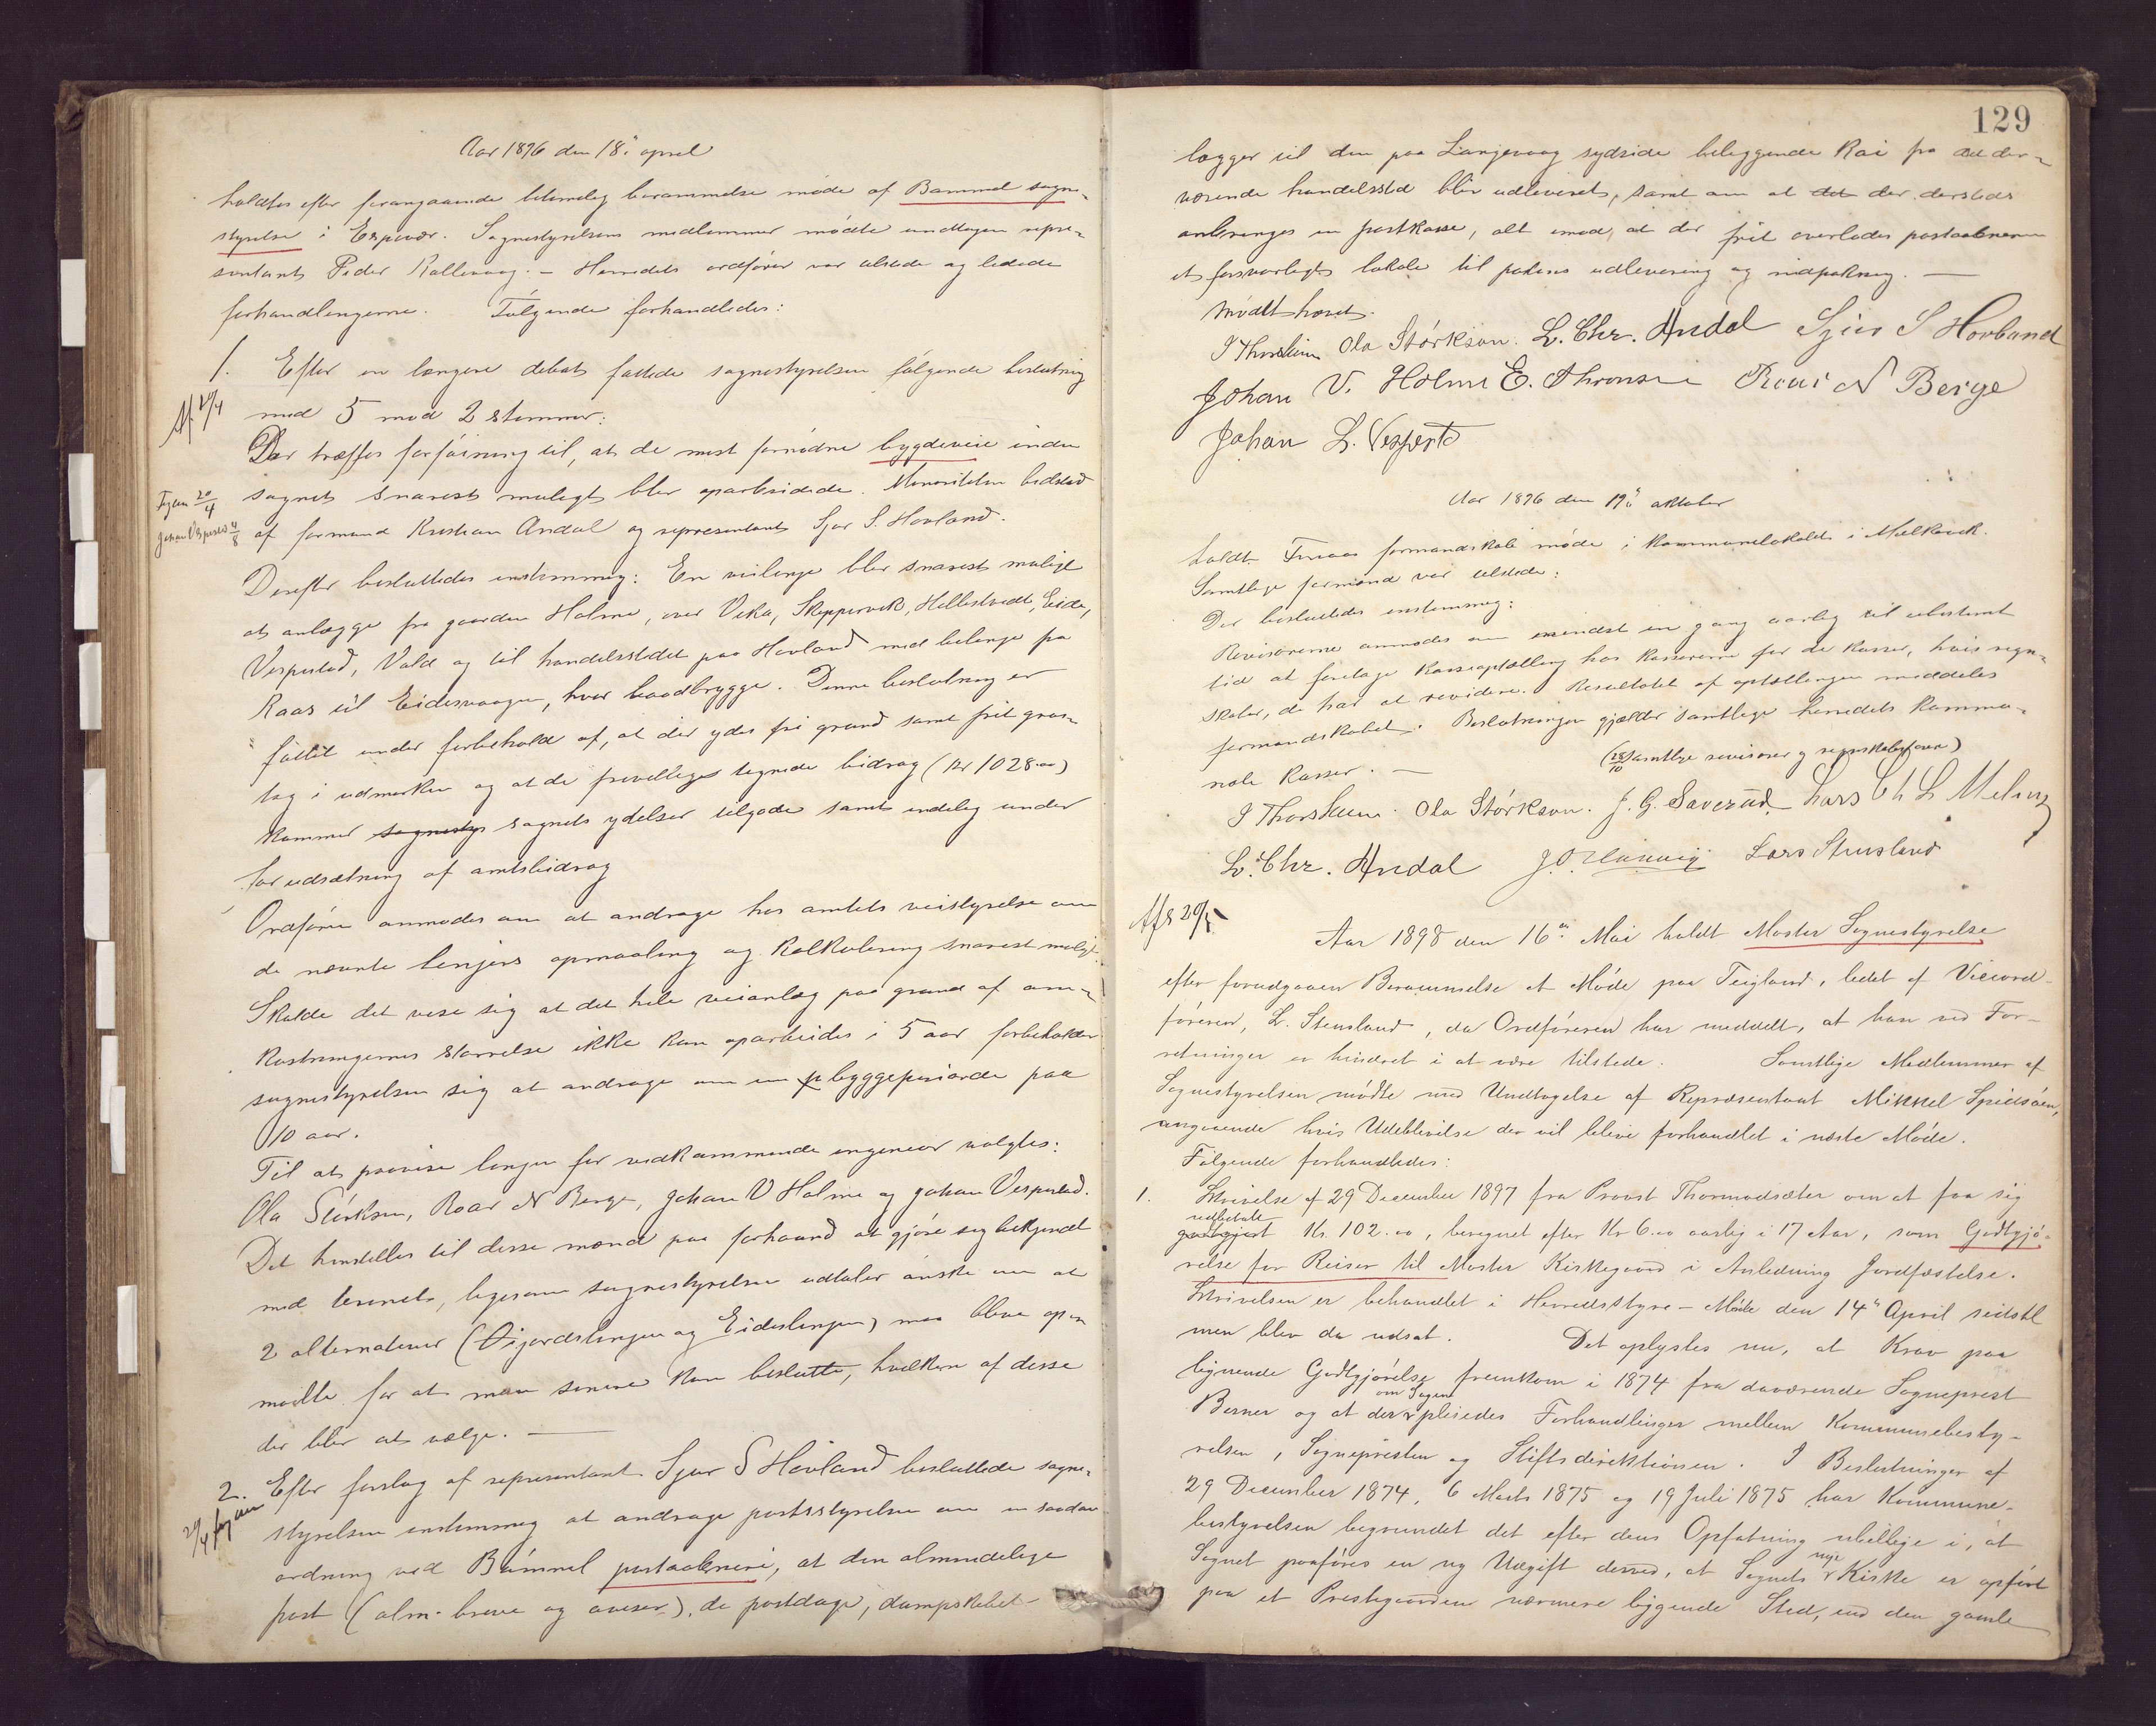 Aar 1896 den 18de april
holdtes efter forangaaende betimelig berammelse møde af Bømmel sogne-
styrelse i Espevær. Sognestyrelsens medlemmer mødte undtagen repre-
sentant Peder Kallevaag. – Herredets ordfører var tilstede og ledede
forhandlingerne. Følgende forhandledes:
1. Efter en længere debat fattede sognestyrelsen følgende beslutning
Af. 29/4 med 5 mod 2 stemmer:
Der træffes forføining til, at de mest fornødne bygdeveie inden
20/4 sognet snarest muligt blir oparbeidede. Minoriteten bestod
Johan Vespestad 4/8 af formand Kristian Andal og representant Sjur S. Hovland.
Derefter besluttedes enstemmig: En veilinje blir snarest muligt
at anlægge fra gaarden Holme, over Vika, Skeppervik, Hillestvedt, Eide,
Vespestad, Vold og til handelsstedet paa Hovland med bilinje fra
Raas til Eidesvaagen, hvor baadbrygge. Denne beslutning er
fattet under forbehold af, at der ydes fri grund samt frit grus-
tag i udmarken og at de frivilliges tegnede bidrag (kr 1028.00)
kommer sognestys sognets ydelser tilgode samt endelig under
forudsætning af amtsbidrag
Ordføren anmodes om at andrage hos amtets veistyrelse om
de nævnte linjers opmaaling og kalkulering snarest muligt.
Skulde det vise sig at det hele veianlæg paa grund af om-
kostningernes størrelse ikke kan oparbeides i 5 aar forbeholder
sognestyrelsen sig at andrage om en p byggeperiode paa
10 aar.
Til at paavise linjen for vedkommende ingeniør valgtes:
Ola Størksen, Roar N Berge, Johan V Holme og Johan Vespestad.
Det henstilles til disse mænd paa forhaand at gjøre sig bekjendt
med terænet, ligesom sognestyrelsen udtaler ønske om at
2 alternativer (Øijordslinjen og Eideslinjen) maa blive op-
maalte for at man senere kan beslutte, hvilken af disse
der blir at vælge. –
2. Efter forslag af representant Sjur S Hovland besluttede sogne-
29/4 styrelsen enstemmig at andrage poststyrelsen om en saadan
ordning ved Bømmel postaabneri, at den almindelige
post (alm. breve og aviser), de postdage, dampskibet
129
lægger til den paa Langevaag sydside beliggende kai fra det der-
værende handelssted blir udleveret, samt om at det der dersteds
anbringes en postkasse, alt imod, at der frit overlades postaabneren
et forsvarligt lokale til postens udlevering og indpakning. –
Mødet hævet.
I Thorsheim Ola Størkson. L. Chr. Andal Sjur S Hovland
Johan V. Holme E. Thronsen Roar N Berge
Johan L. Vespestad
Aar 1896 den 19de oktober
holdt Finaas formandskab møde i kommunelokalet i Mælkevik.
Samtlige formænd var tilstede:
Der besluttedes enstemmig:
Revisorerne anmodes om mindst en gang aarlig til ubestemt
tid at foretage kasseoptælling hos kassererne for de kasser, hvis regn-
skaber, de har at revidere. Resultatet af optællingen meddeles
formandskabet. Beslutningen gjælder samtlige herredets kommu-
nale kasser. – (28/10 samtlige revisorer og regnskabsførere)
I Thorsheim. Ola Størkson. J. G. Saverud Lars Ch L Meling
L. Chr. Andal Lars Stensland
Afs 20/5
Aar 1898 den 16de Mai holdt Moster Sognestyrelse
efter forudgaaen Berammelse et Møde paa Teigland, ledet af Viceord-
føreren, L. Stensland, da Ordføreren har meddelt, at han ved For-
retninger er hindret i at være tilstede. Samtlige Medlemmer af
Sognestyrelsen mødte med Undtagelse af Repræsentant Mikkel Spidsøen,
angaaende hvis Udeblivelse der vil blive forhandlet i næste Møde.
Følgende forhandledes:
1. Skrivelse af 29 December 1897 fra Provst Thormodsæter om at faa sig
udbetalt
godtgjort Kr. 102.00, beregnet efter Kr 6.00 aarlig i 17 Aar, som Godtgjø-
relse for Reiser til Moster Kirkegaard i Anledning Jordfæstelse.
Skrivelsen er behandlet i Herredsstyre-Møde den 14de April sidstl
men blev da udsat. Det oplystes nu, at Krav paa
lignende Godtgjørelse fremkom i 1874 fra daværende Sogneprest
om Sagen
Berner og at der pleiedes Forhandlinger mellem Kommunebesty-
relsen, Sognepresten og Stiftsdirektionen. I Beslutninger af
29 December 1874, 6 Marts 1875 og 19 Juli 1875 har Kommune-
bestyrelsen begrundet det efter dens Opfatning ubillige i, at
nye
Sognet paaføres en ny Udgift derved, at Sognets Kirke er opført
paa et Prestegaarden nærmere liggende Sted, end den gamle